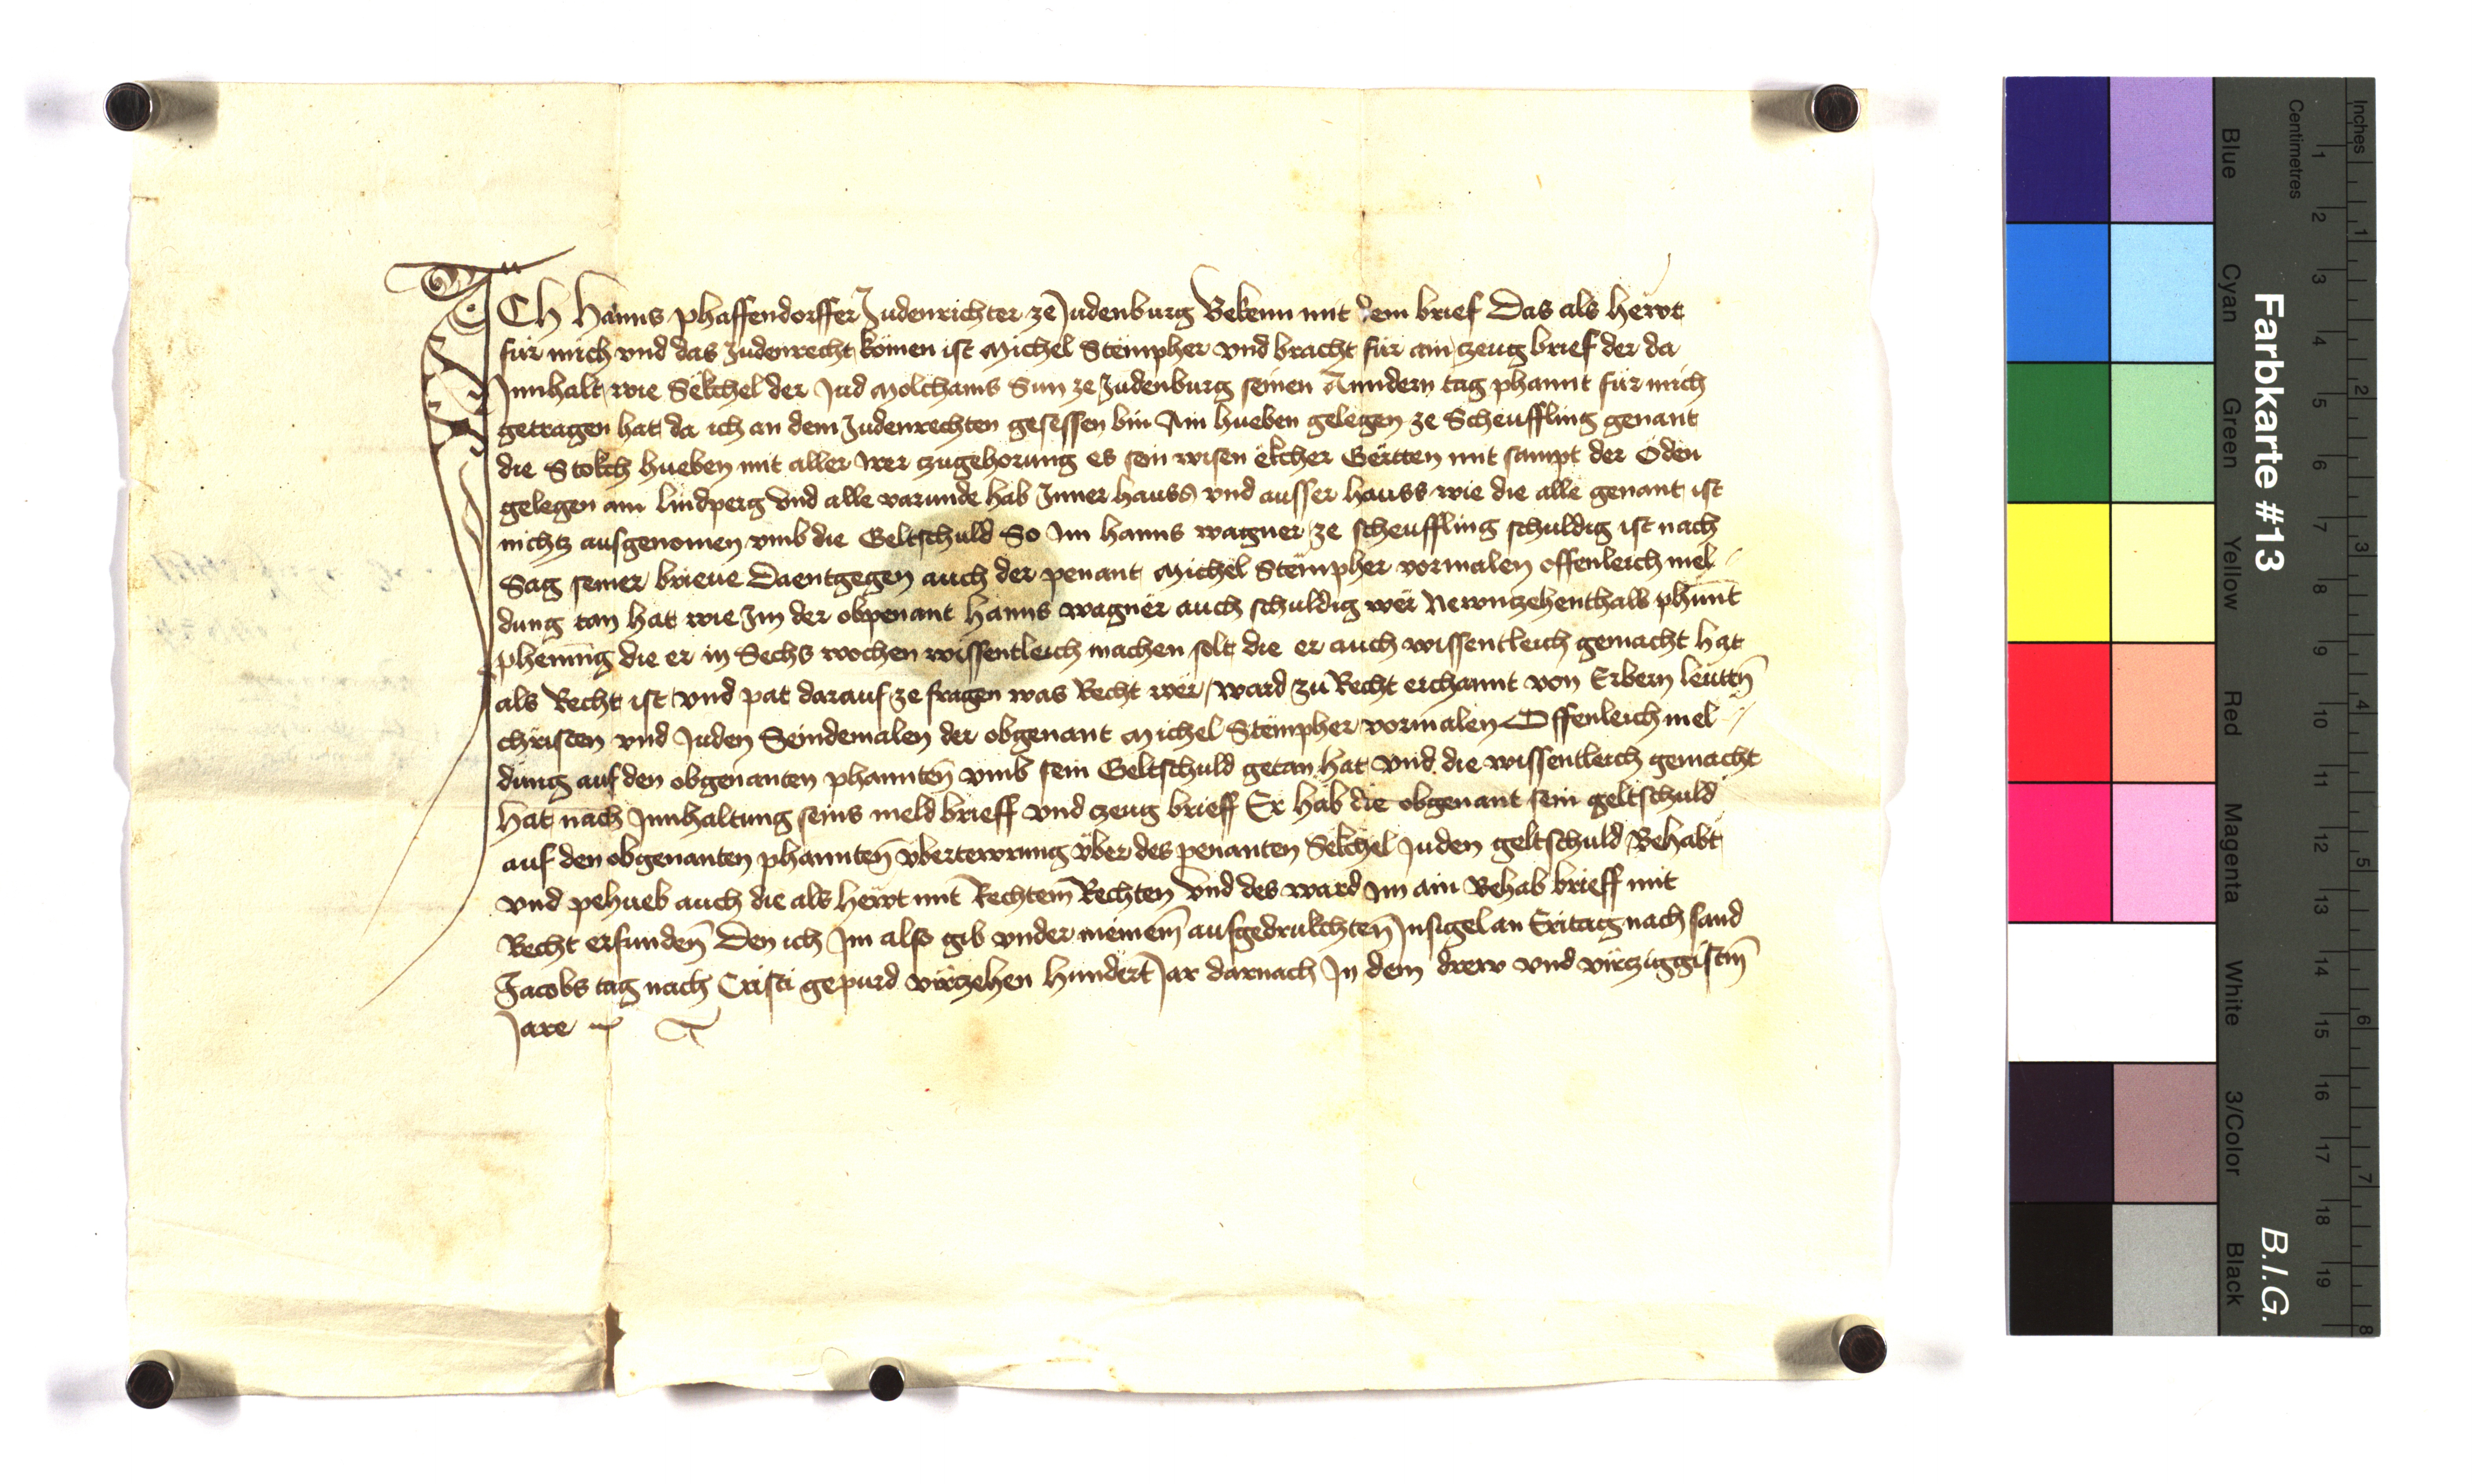 ICh Hanns phaffendorffer Judenrichter ze Judenburg Bekenn mit dem brief Das als hewt
für mich vnd das Judenrecht komen ist Michel Stëmpher vnd bracht für ain zeug brief der da
Innhalt wie Sëkchel der Jud Molchams Sun ze Judenburg seinen Anndern tag phannt für mich
getragen hat da ich an dem Judenrechten gesessen bin Ain hueben gelegen ze Scheuffling genant
die Stokch hueben mit aller irer zugehorung es sein wisen ëkcher Gërtten mit sampt der Öden
gelegen am lindperg vnd alle varunde hab Inner hauss vnd ausser hauss wie die alle genant ist
nichtz ausgenomen vmb die Geltschuld So im hanns wagner ze scheuffling schuldig ist nach
Sag seiner brieue Daentgegen auch der penant Michel Stëmpher vormalen offenleich mel-
dung tan hat wie Im der obpenant hanns wagner auch schuldig wër Newntzehenthalb phunt
phening die er in Sechs wochen wissentleich machen solt die er auch wissentleich gemacht hat
als Recht ist vnd pat darauf ze fragen was Recht wër ward zu Recht erchannt von Erbern leuttn̄
christen vnd Juden Seindemalen der obgenant Michel Stëmpher vormalen Offenleich mel-
dung auf den obgenanten phannten̄ vmb sein Geltschuld getan hat vnd die wissentleich gemacht
hat nach Innhaltung seins meld brieff vnd zeug brieff Er hab die obgenant sein geltschuld
auf den obgenanten phannten̄ vbertewrung über des penanten Sëkchel Juden geltschuld Behabt
vnd pehueb auch die als hewt mit Rechtem̄ Rechten vnd des ward im ain Behab brieff mit
Recht erfunden̄ Den ich Im also gib vnder meinem̄ aufgedrukchten̄ Insigel an Eritag nach sand
Jacobs tag nach Cristi gepurd virtzehen hundert Jar darnach In dem drew vnd virtziggistn̄
Jare
Farbkarte #13
B.I.G.
Inches
Centimetres
Blue
Cyan
Green
Yellow
Red
Magenta
White
3/Color
Black
1 2 3 4 5 6 7 8 9 10 11 12 13 14 15 16 17 18 19
1 2 3 4 5 6 7 8